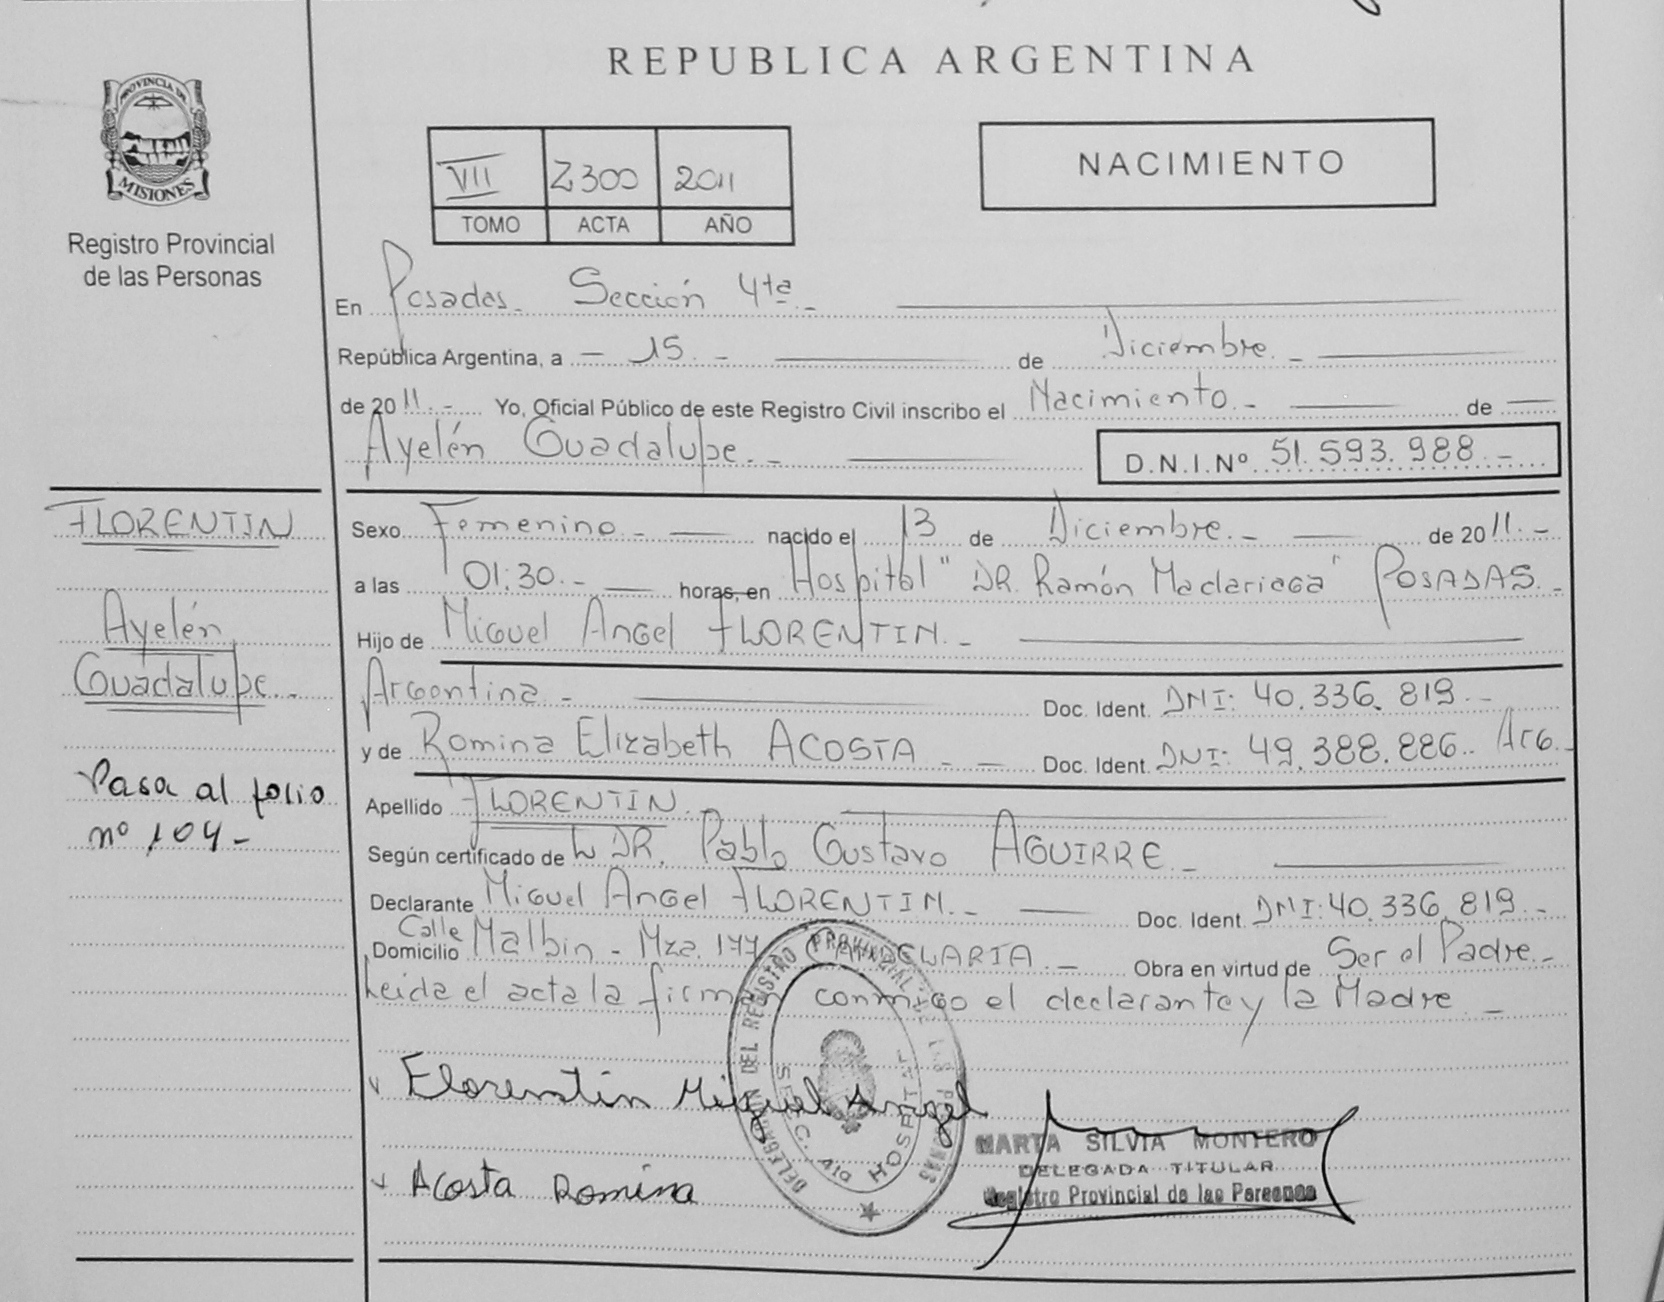 REPUBLICA ARGENTINA
PROVINCIA DE
MISIONES
Registro Provincial
de las Personas
VII 2300 2011
TOMO ACTA AÑO
NACIMIENTO
En Posadas - Sección 4ta -
República Argentina, a - 15 - de Diciembre. -
de 2011. - Yo, Oficial Público de este Registro Civil inscribo el Nacimiento. - de
Ayelén Guadalupe. - D.N.I.Nº 51.593.988. -
FLORENTIN
Ayelén
Guadalupe. -
Pasa al folio
nº 104 -
Sexo Femenino - nacido el 13 de Diciembre. - de 2011. -
a las 01:30. - horas, en Hospital " DR. Ramón Madariaga" POSADAS. -
Hijo de Miguel Angel FLORENTIN. -
Argentina - Doc. Ident. DNI: 40.336.819 -
y de Romina Elizabeth ACOSTA - - Doc. Ident. DNI: 49.388.886. Arg. -
Apellido FLORENTIN. -
Según certificado de DR. Pablo Gustavo AGUIRRE. -
Declarante Miguel Angel FLORENTIN. - Doc. Ident. DNI: 40.336.819. -
Domicilio Calle Malbin - Mza. 177 CANDELARIA. - Obra en virtud de Ser el Padre. -
Leida el acta la firman conmigo el declarante y la Madre -
Florentin Miguel Angel
Acosta Romina
DELEGACION DEL REGISTRO PROVINCIAL DE LAS PERSONAS
SECC. 4ta HOSPITAL
MARTA SILVIA MONTERO
DELEGADA TITULAR
Registro Provincial de las Personas